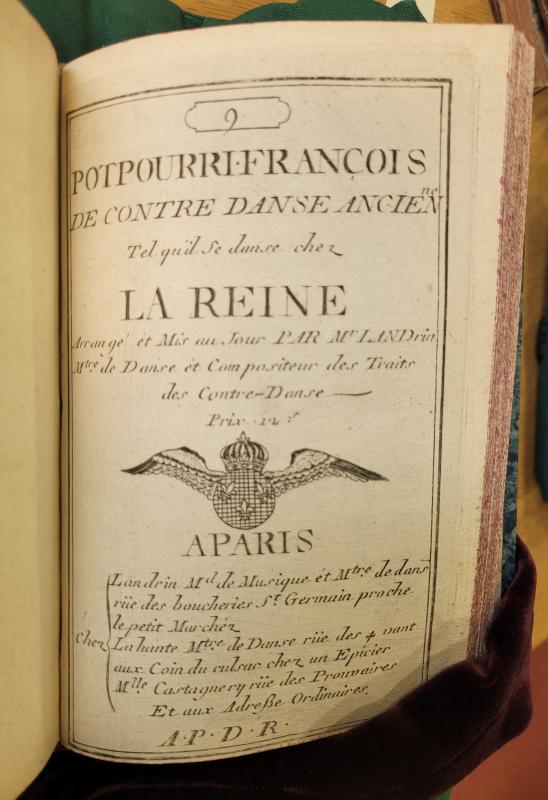 9
POTPOURRI·FRANÇOIS
DE CONTRE DANSE ANCIENne
Tel qu'il Se danse chez
LA REINE
Arrangé ét Mis au Jour PAR Mr LANDrin
Mtre de Danse ét Compositeur des Traits
des Contre-Danse
Prix 12 s
APARIS
Landrin Md de Musique ét Mtre de dans
rüe des boucheries St Germain proche
le petit Marchéz
Chez
La hante Mtre de Danse rüe des 4 vant
aux Coin du culsac chez un Epicier
Mlle Castagnery rüe des Prouvaires
Et aux Adreße Ordinaires.
A·P·D·R·